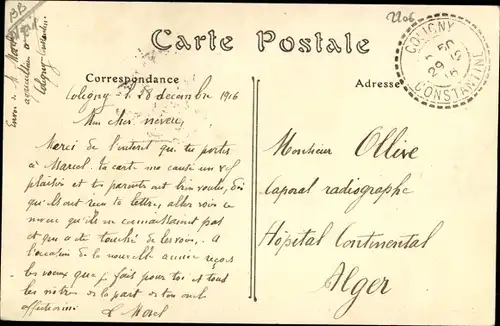 2206
Carte Postale
Correspondance
Adresse
COLIGNY
29
CONSTANTINE
Coligny 28 décembre 1916
Mon cher neveu,
Merci de l'interet que tu portes
à Marcel. Ta carte me cause un vif
plaisir et tes parents ont bien voulu, dès
qu'ils ont reçu ta lettre, aller voir ce
neveu qu'ils ne connaissaient pas
et qui a été touché de les voir. A
l'occasion de la nouvelle année reçois
les voeux que je fais pour toi et tous
les nôtres de la part de ton oncle
affectionné
Monsieur Ollive
Caporal radiographe
Hôpital Continental
Alger